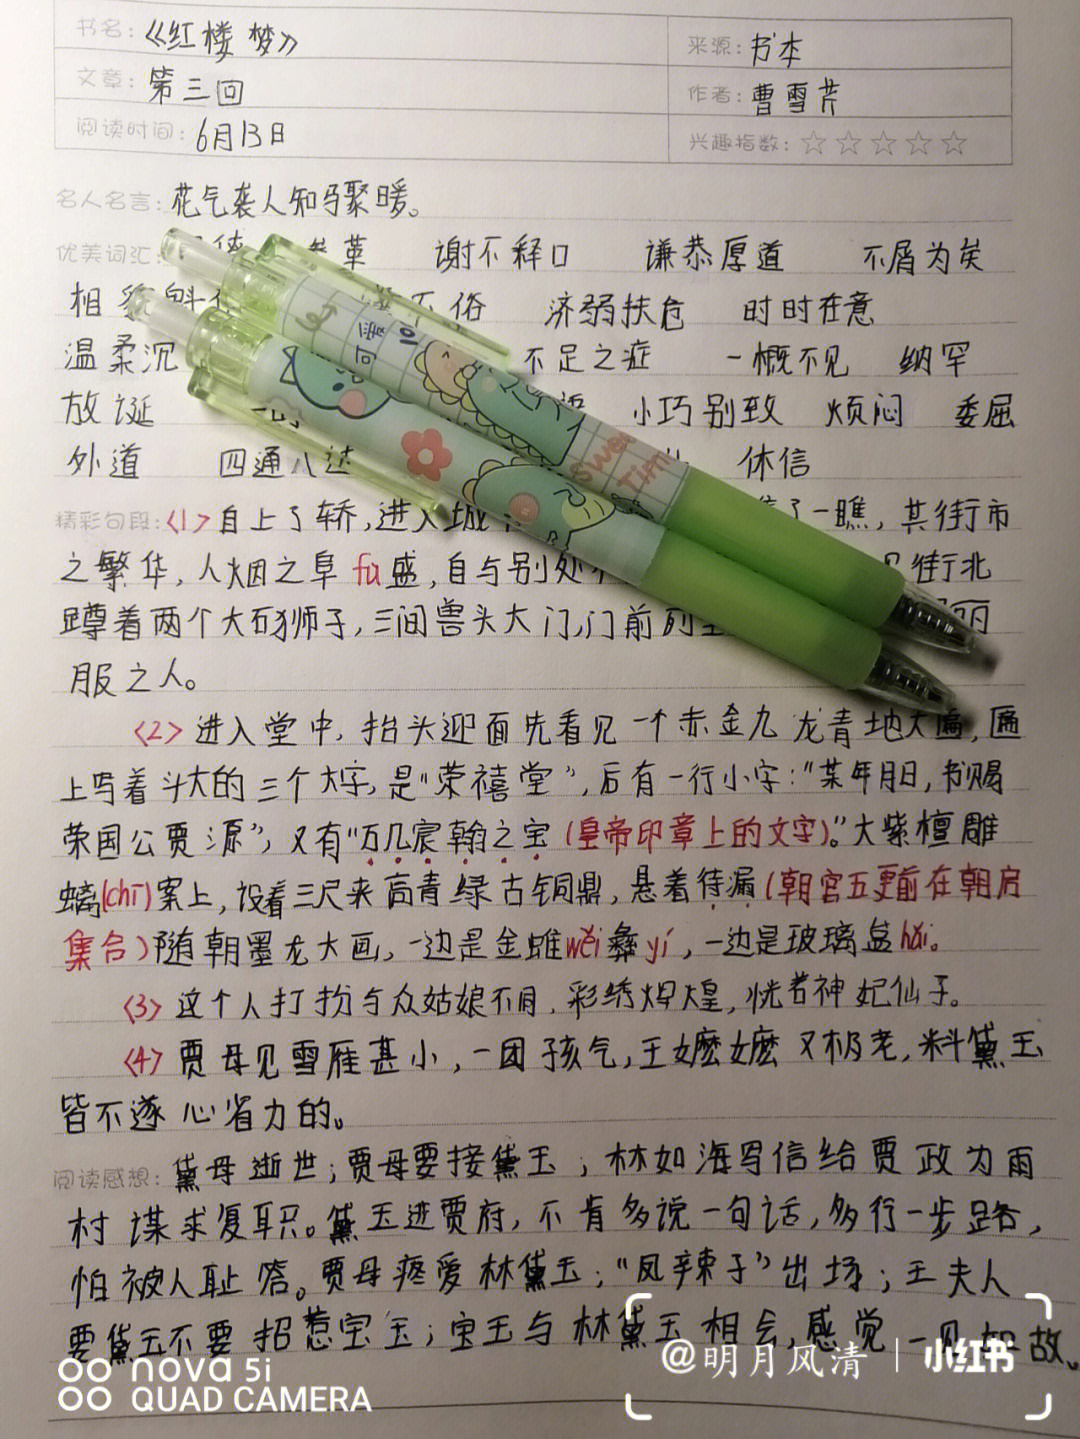 书名:《红楼梦》 来源:书本
文章:第三回 作者:曹雪芹
阅读时间:6月13日 兴趣指数:☆☆☆☆☆
名人名言:花气袭人知骤暖。
优美词汇: 革 谢不释口 谦恭厚道 不屑为矣
相貌魁 不俗 济弱扶危 时时在意
可爱
温柔沉 不足之症 一概不见 纳罕
放诞 小巧别致 烦闷 委屈
外道 四通八达 休信
Sweet Tim
精彩句段:<1>自上了轿,进入城 了一瞧,其街市
之繁华,人烟之阜fu盛,自与别处 街北
蹲着两个大石狮子,三间兽头大门,门前列 丽
服之人。
<2>进入堂中,抬头迎面先看见一个赤金九龙青地大匾,匾
上写着斗大的三个大字,是“荣禧堂”,后有一行小字:“某年月日,书赐
荣国公贾源”,又有“万几宸翰之宝(皇帝印章上的文字)。”大紫檀雕
螭(chī)案上,设着三尺来高青绿古铜鼎,悬着待漏(朝宫五更前在朝房
集合)随朝墨龙大画,一边是金蜼wěi彝yí,一边是玻璃盒hǎi。
<3>这个人打扮与众姑娘不同,彩绣辉煌,恍若神妃仙子。
<4>贾母见雪雁甚小,一团孩气,王嬷嬷又极老,料黛玉
皆不遂心省力的。
阅读感想:黛母逝世;贾母要接黛玉;林如海写信给贾政为雨
村谋求复职。黛玉进贾府,不肯多说一句话,多行一步路,
怕被人耻笑。贾母疼爱林黛玉;“凤辣子”出场;王夫人
要黛玉不要招惹宝玉;宝玉与林黛玉相会,感觉一见如故。
@明月风清 | 小红书
nova 5i
QUAD CAMERA